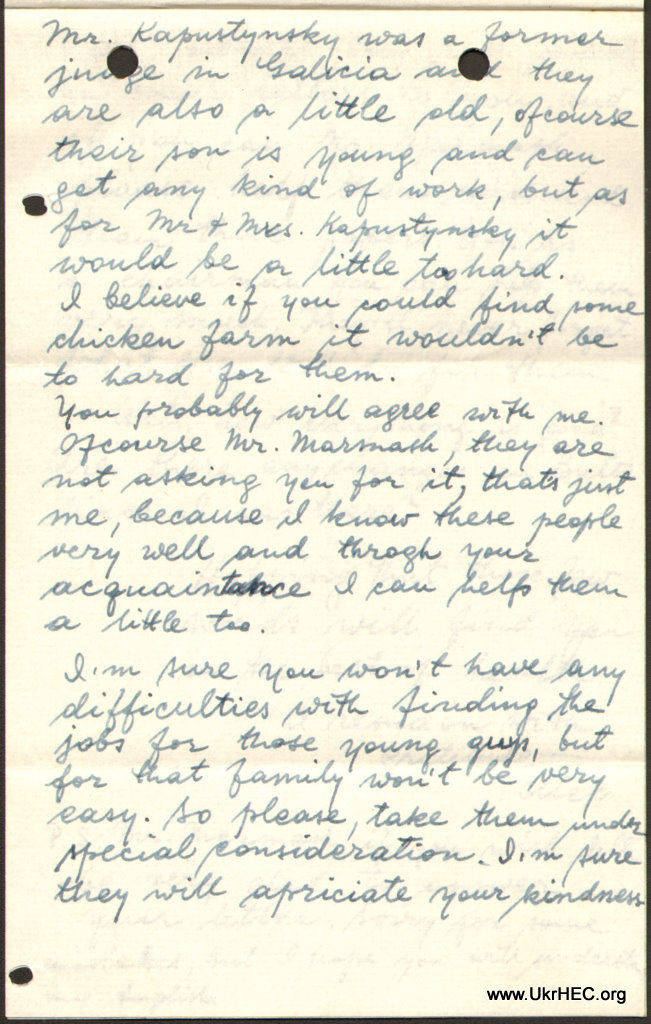 Mr. Kapustynsky was a former
judge in Galicia and they
are also a little old, ofcourse
their son is young and can
get any kind of work, but as
for Mr + Mrs. Kapustynsky it
would be a little too hard.
I believe if you could find some
chicken farm it wouldn't be
to hard for them.
You probably will agree with me.
Ofcourse Mr. Marmash, they are
not asking you for it, that's just
me, because I know these people
very well and throgh your
acquaintance I can help them
a little too.
I'm sure you won't have any
difficulties with finding the
jobs for those young guys, but
for that family won't be very
easy. So please, take them under
special consideration. I'm sure
they will apriciate your kindness
www.UkrHEC.org